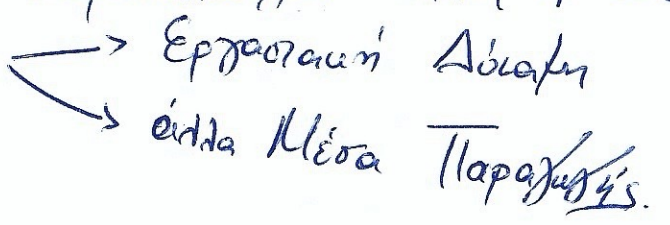 Εργασιακή Δύναμη
άλλα Μέσα Παραγωγής.